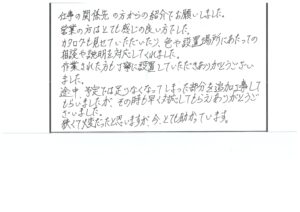 仕事の関係先の方からの紹介でお願いしました。
営業の方はとても感じの良い方でした。
カタログも見せていただいたり、色や設置場所にあたっての
相談や説明を対応してくれました。
作業された方も丁寧に設置していただきありがとうござい
ました。
途中、予定では足りなくなってしまった部分を追加工事して
もらいましたが、その時も早く対応してもらえありがとうご
ざいました。
狭くて大変だったと思いますが、今、とても助かっています。